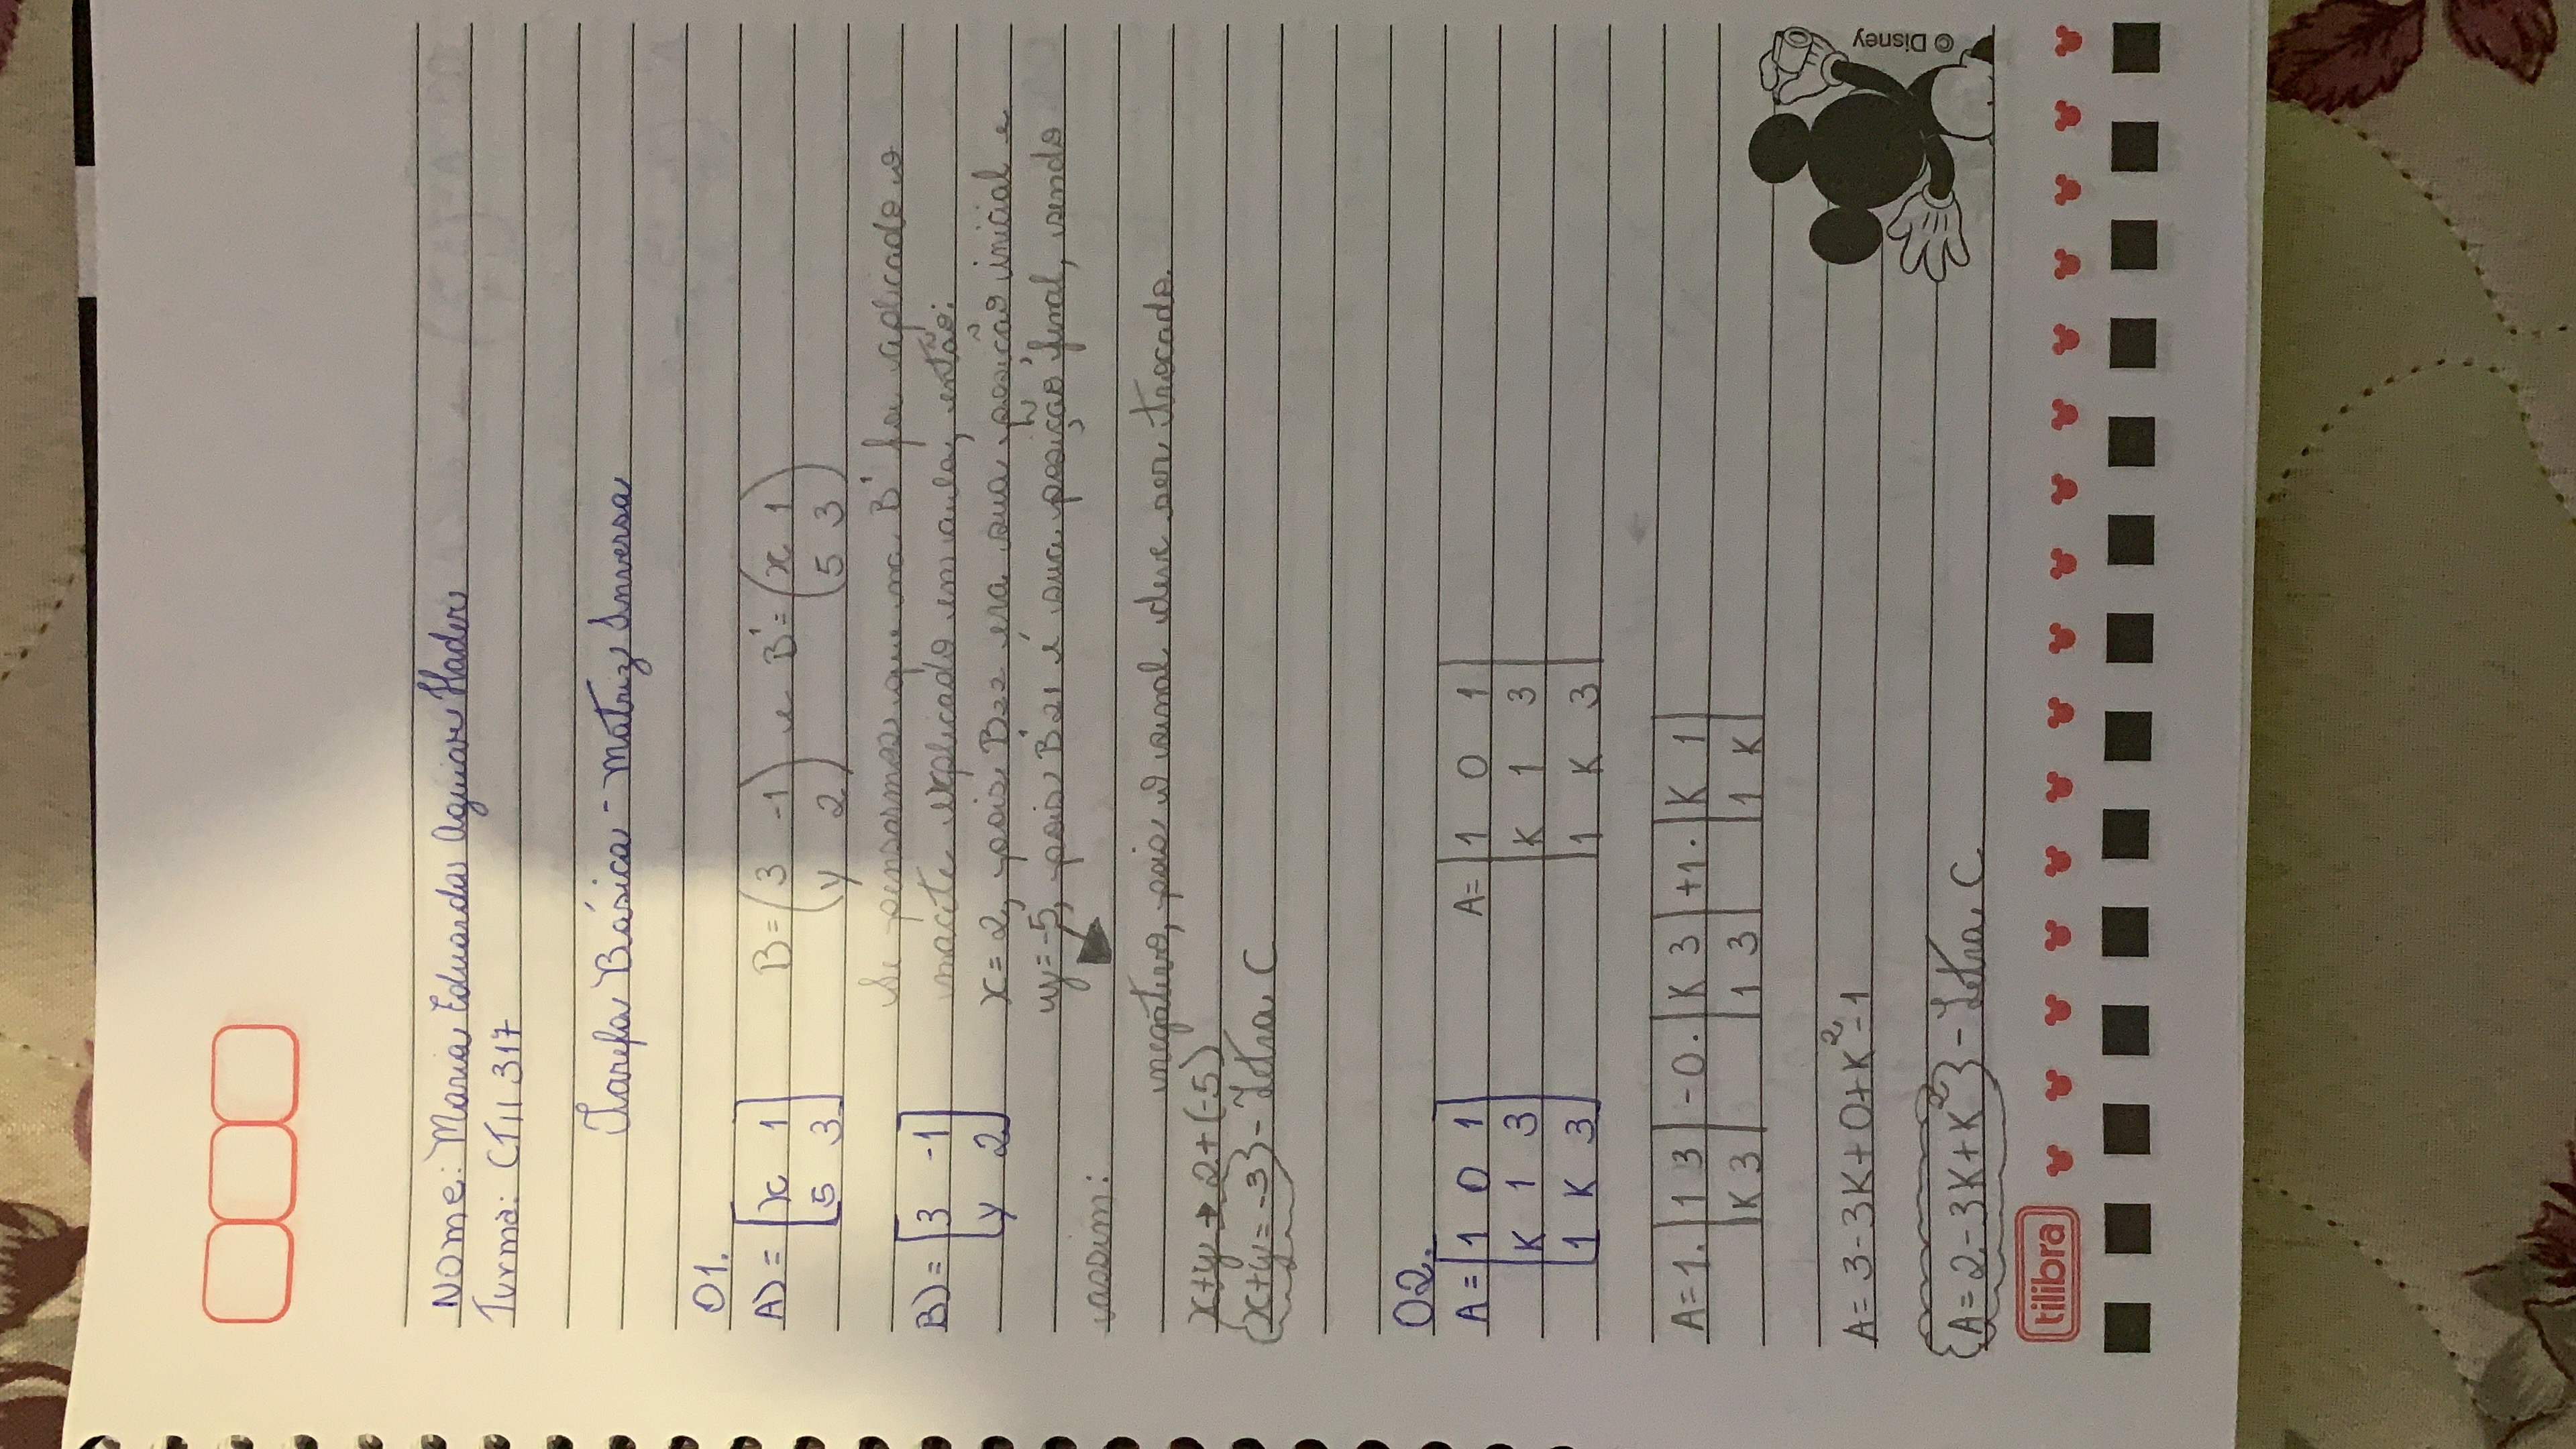 Nome: Maria Eduarda Aguiar Hader
Turma: CTII 317
Tarefa Básica - Matriz Inversa
01.
A) = [x 1
5 3]
B = (3 -1
y 2) e B' = (x 1
5 3)
B) = [3 -1
y 2]
Se pensarmos que na B' foi aplicado o
macete explicado em aula, então:
x = 2, pois B22 era sua posição inicial e
y = -5, pois B'21 é sua posição final, sendo
assim:
negativo, pois o sinal deve ser trocado.
x+y → 2+(-5)
x+y = -3 - Letra C
02.
A = [1 0 1
K 1 3
1 K 3]
A = |1 0 1
K 1 3
1 K 3|
A = 1. |1 3
K 3| - 0. |K 3
1 3| + 1. |K 1
1 K|
A = 3 - 3K + 0 + K² - 1
A = 2 - 3K + K² - Letra C
© Disney
tilibra